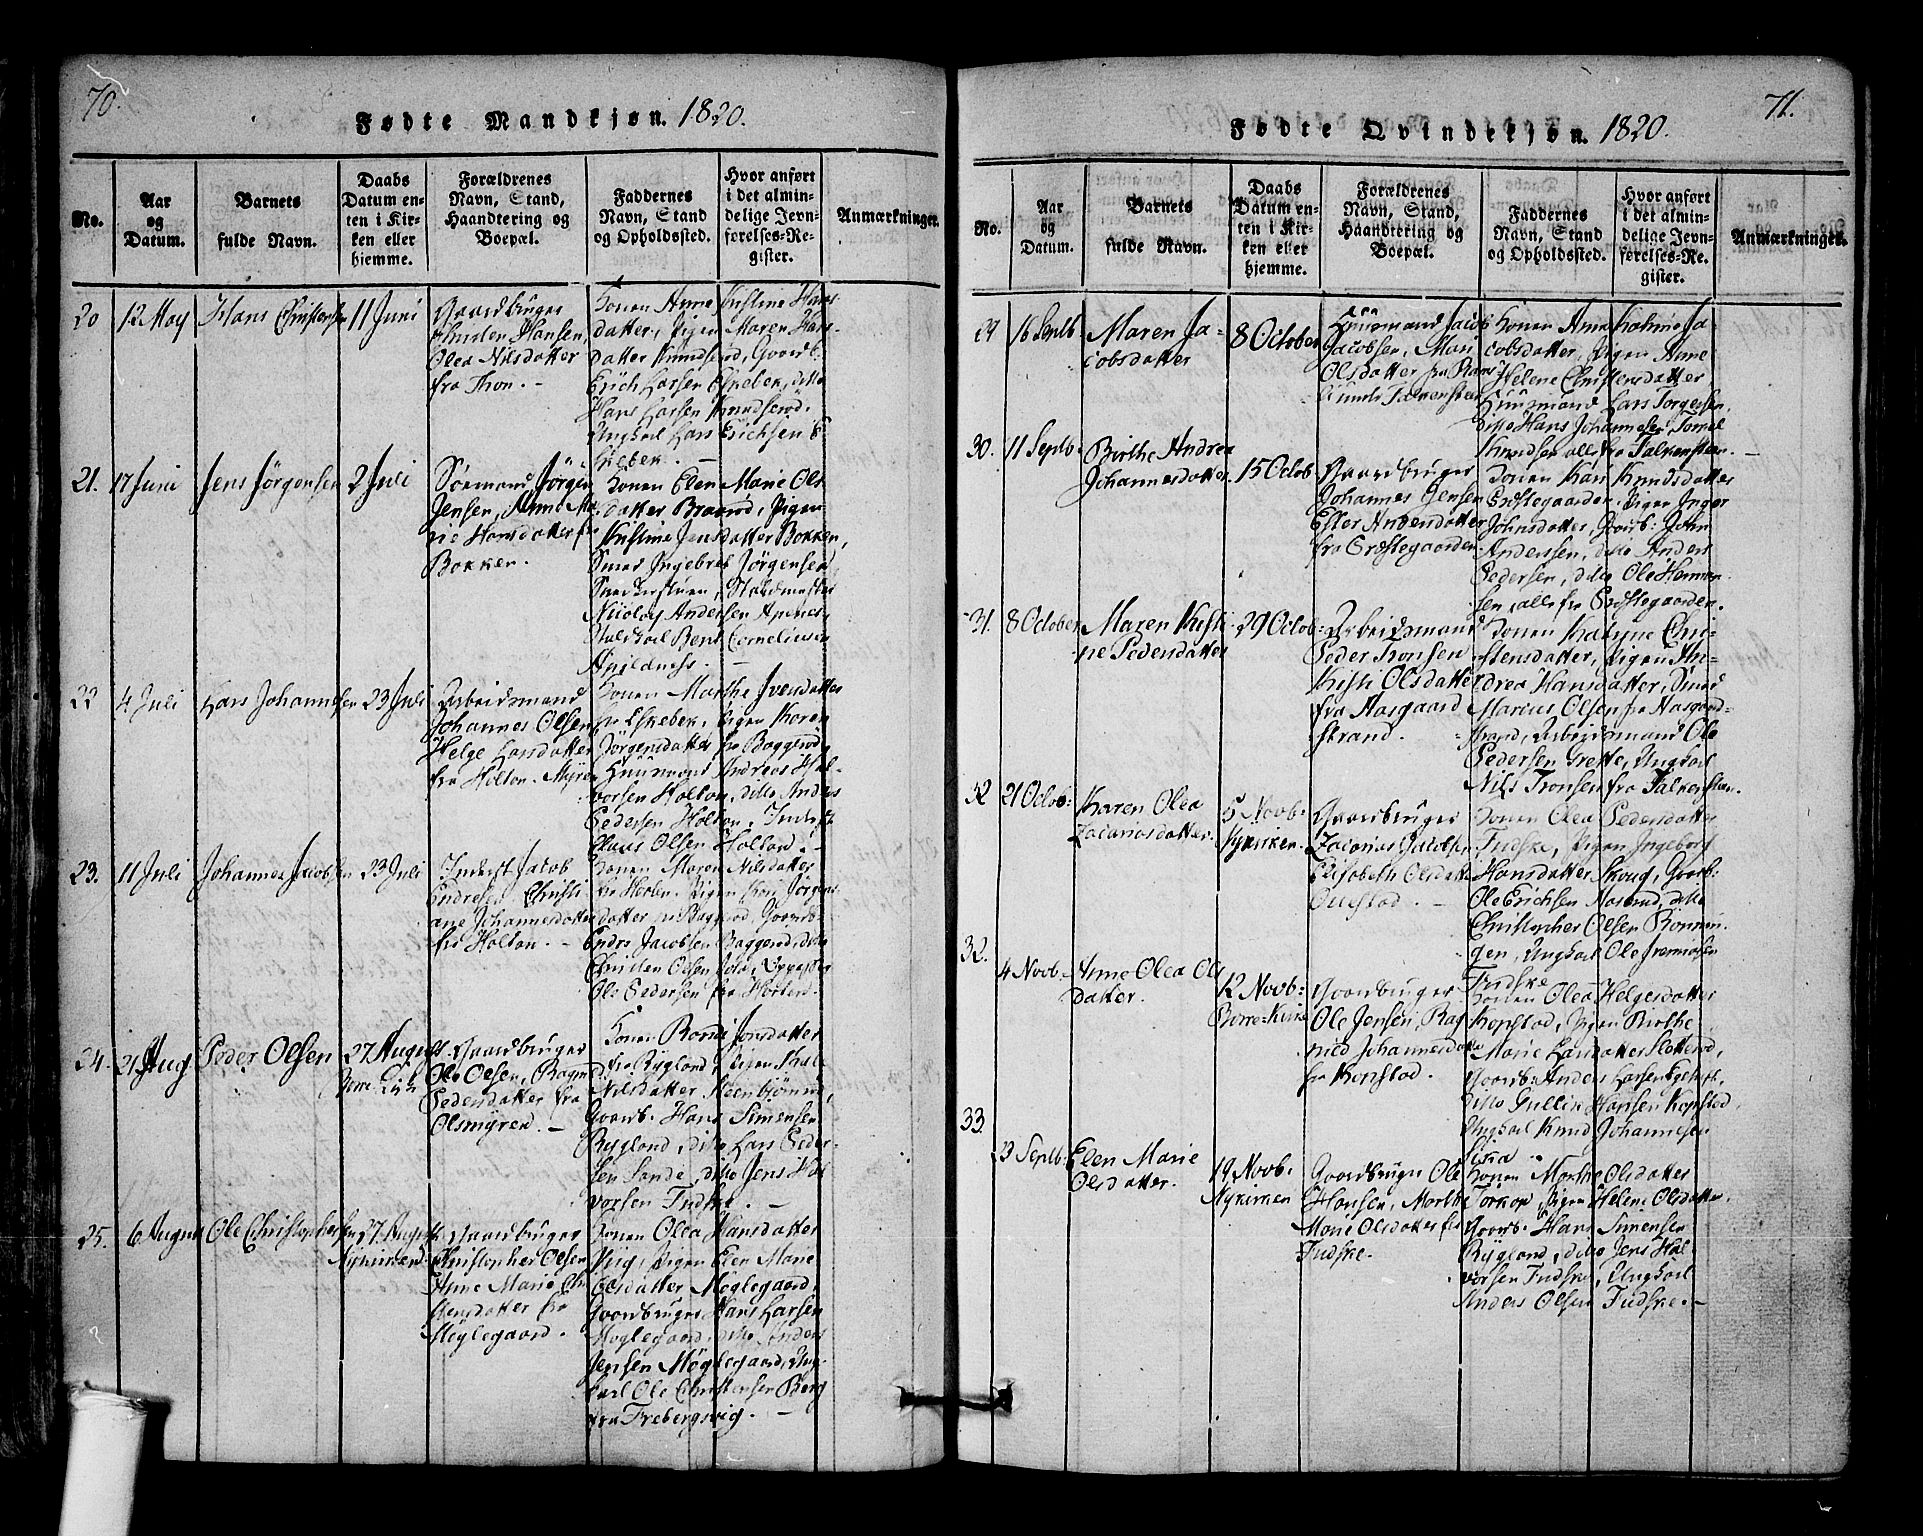 70.
Fødte Mandkjøn. 1820.
No.
Aar
og
Datum.
Barnets
fulde Navn.
Daabs
Datum en-
ten i Kir-
ken eller
hjemme.
Forældrenes
Navn, Stand,
Haandtering og
Boepæl.
Faddernes
Navn, Stand
og Opholdssted.
Hvor anført
i det almin-
delige Jevn-
førelses-Re-
gister.
Anmærkninger.
20
12 May
Hans Christensen
11 Juni
Gaardbruger
Christen Hansen,
Olea Nilsdatter
fra Thon. -
Konen Anne Kistine Hans-
datter, Pigen Maren Hans-
datter Knudserød, Gaardb:
Erich Larsen Eskebek, ditto
Hans Larsen Knudserød.
Ungkarl Lars Erichsen E-
skebek. -
21.
17 Juni
Jens Jørgensen
2 Juli
Sømand Jørgen
Jensen, Anne Ma-
rie Hansdatter fra
Bakken.
Konen Elen Marie Ols-
datter Braarød, Pigen
Kistine Jensdatter Bakken,
Smed Ingebret Jørgensen
Nicolay Andersen Apenes,
Staldkarl Bent Cornelinsen
22
4 Juli
Lars Johannesen
23 Juli
Arbeidsmand
Johannes Olsen,
Helge Larsdatter
fra Holtan. Myren
Konen Marthe Svendatter
fra Eskebek, Pigen Karen
Jørgensdatter fra Baggerød,
Huusmand Andreas Hal-
vorsen Holtan, ditto Anders
Pedersen Holtan, Inderst
Claus Olsen Holtan. -
23.
11 Juli
Johannes Jacobsen
23 Juli
Inderst Jacob
Endresen, Christi-
ane Johannesdatter
fra Holtan. -
Konen Maren Nilsdatter
Pigen Kari Jørgens-
datter fra Baggerød, Gaardb:
Endre Jacobsen Baggerød, ditto
Christen Olsen
Ole Pedersen fra Horten.
24.
21 Aug
Peder Olsen
27 August
Gaardbruger
Ole Olsen, Ragni
Pedersdatter fra
Olsmyren. -
Konen Randi Jonsdatter
fra Rygland, Pigen
Nilsdatter Steenbjørnrød,
Gaardb. Hans Simensen
Rygland, ditto Lars Peder-
sen Sande, ditto Jens Hal-
vorsen Fudske. -
25.
6 August
Ole Christophersen
27 August
Nykirken
Gaardbruger
Christopher Olsen
Anne Marie Chri-
stensdatter fra
Møglegaard.
Konen Olea Hansdatter
Pigen Elen Marie
Olsdatter Møglegaard,
Gaardbruger Hans Larsen
Møglegaard, ditto Anders
Jensen Møglegaard, Ung-
karl Ole Christensen Berg
fra Frebergsvig. -
71.
Fødte Qvindekjøn. 1820.
No.
Aar
og
Datum.
Barnets
fulde Navn.
Daabs
Datum en-
ten i Kir-
ken eller
hjemme.
Forældrenes
Navn, Stand,
Haandtering og
Boepæl.
Faddernes
Navn, Stand
og Opholdssted.
Hvor anført
i det almin-
delige Jevn-
førelses-Re-
gister.
Anmærkninger.
29
16 Septb
Maren Ja-
cobsdatter
8 October
Huusmand Jacob
Jacobsen, Mari
Olsdatter fra
Falkensteen
Konen Anne Katrine Ja-
cobsdatter, Pigen Anne
Helene Christensdatter
Huusmand Lars Torgersen,
ditto Hans Johannesen,
Knudsen alle fra Falkensteen. -
30.
11 Septb.
Birthe Andrea
Johannesdatter.
15 Octob
Gaardbruger
Johannes Jensen
Ester Andersdatter
fra Præstegaarden
Konen Kari Knudsdatter
Præstegaarden. Pigen Inger
Johnsdatter, Gaardb: John
Anderssen, ditto Anders
Pedersen, ditto Ole Herman-
sen, alle fra Præstegaarden.
31.
8 October
Maren Kisti-
ne Pedersdatter
29 Octob:
Arbeidsmand
Peder Tronsen
Kisti Olsdatter
fra Aasgaard
strand.
Konen Katrine Chri-
stensdatter, Pigen An-
drea Hansdatter, Smed
Marcus Olsen fra Aasgaard-
strand, Arbeidsmand Ole
Pedersen Grette, Ungkarl
Nils Tronsen fra Falkensteen.
32
21 Octob:
Karen Olea
Zacariasdatter.
5 Novb:
Nykirken.
Gaardbruger
Zacarias Jacobsen
Elisabeth Olsdatter
Konen Olea Pedersdatter
Fudske, Pigen Ingeborg
Hansdatter Skoug, Gaardb:
Ole Erichsen Aserud, ditto
Christopher Olsen Rønnin-
gen, Ungkarl Ole Iverniasen
Fudske
32.
4 Novb.
Anne Olea Ols-
datter.
12 Novb:
Borre-Kirke
Gaardbruger
Ole Jensen, Rag-
nild Johannesdatter
fra Kopstad.
Konen Olea Helgesdatter
Kopstad, Pigen Birthe
Marie Larsdatter Slotterød,
Gaardb: Anders Larsen
ditto Gullik Hansen Kopstad,
Ungkarl Knud Johannesen
33
13 Septb:
Elen Marie
Olsdatter.
19 Novb:
Nykirken
Gaardbruger Ole
Hansen, Marthe
Marie Olsdatter fra
Fudske.
Konen Marthe Olsdatter
Torkop, Pigen Helene Olsdatter
Gaardb. Hans Simensen
Rygland, ditto Jens Hal-
vorsen Fudske, Ungkarl
Anders Olsen Fudske. -